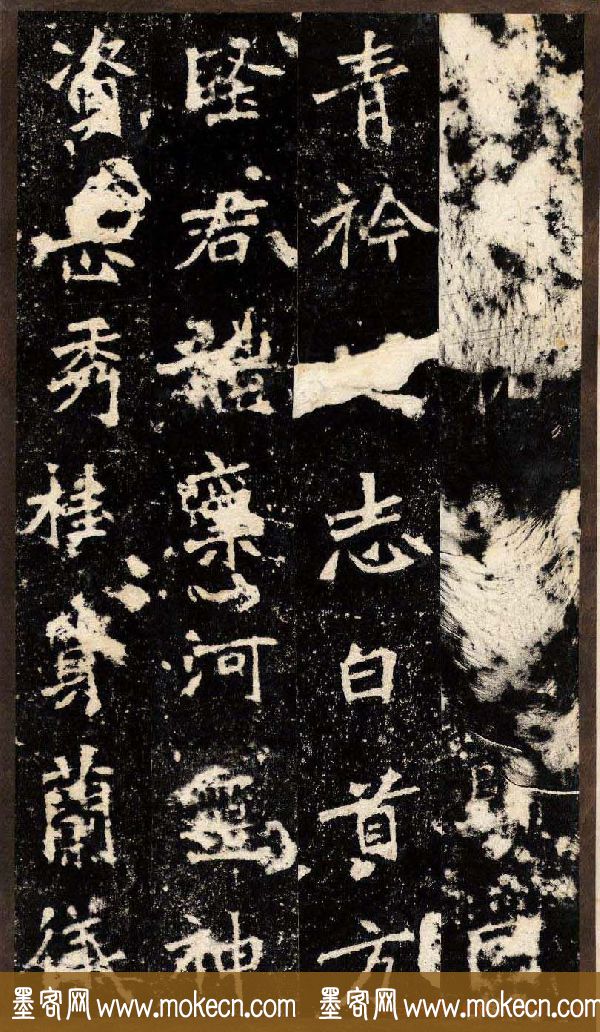 青衿志白首方
堅君體稟河靈神
資岳秀桂蘭儀
墨客网 www.mokecn.com 墨客网 www.mokecn.com